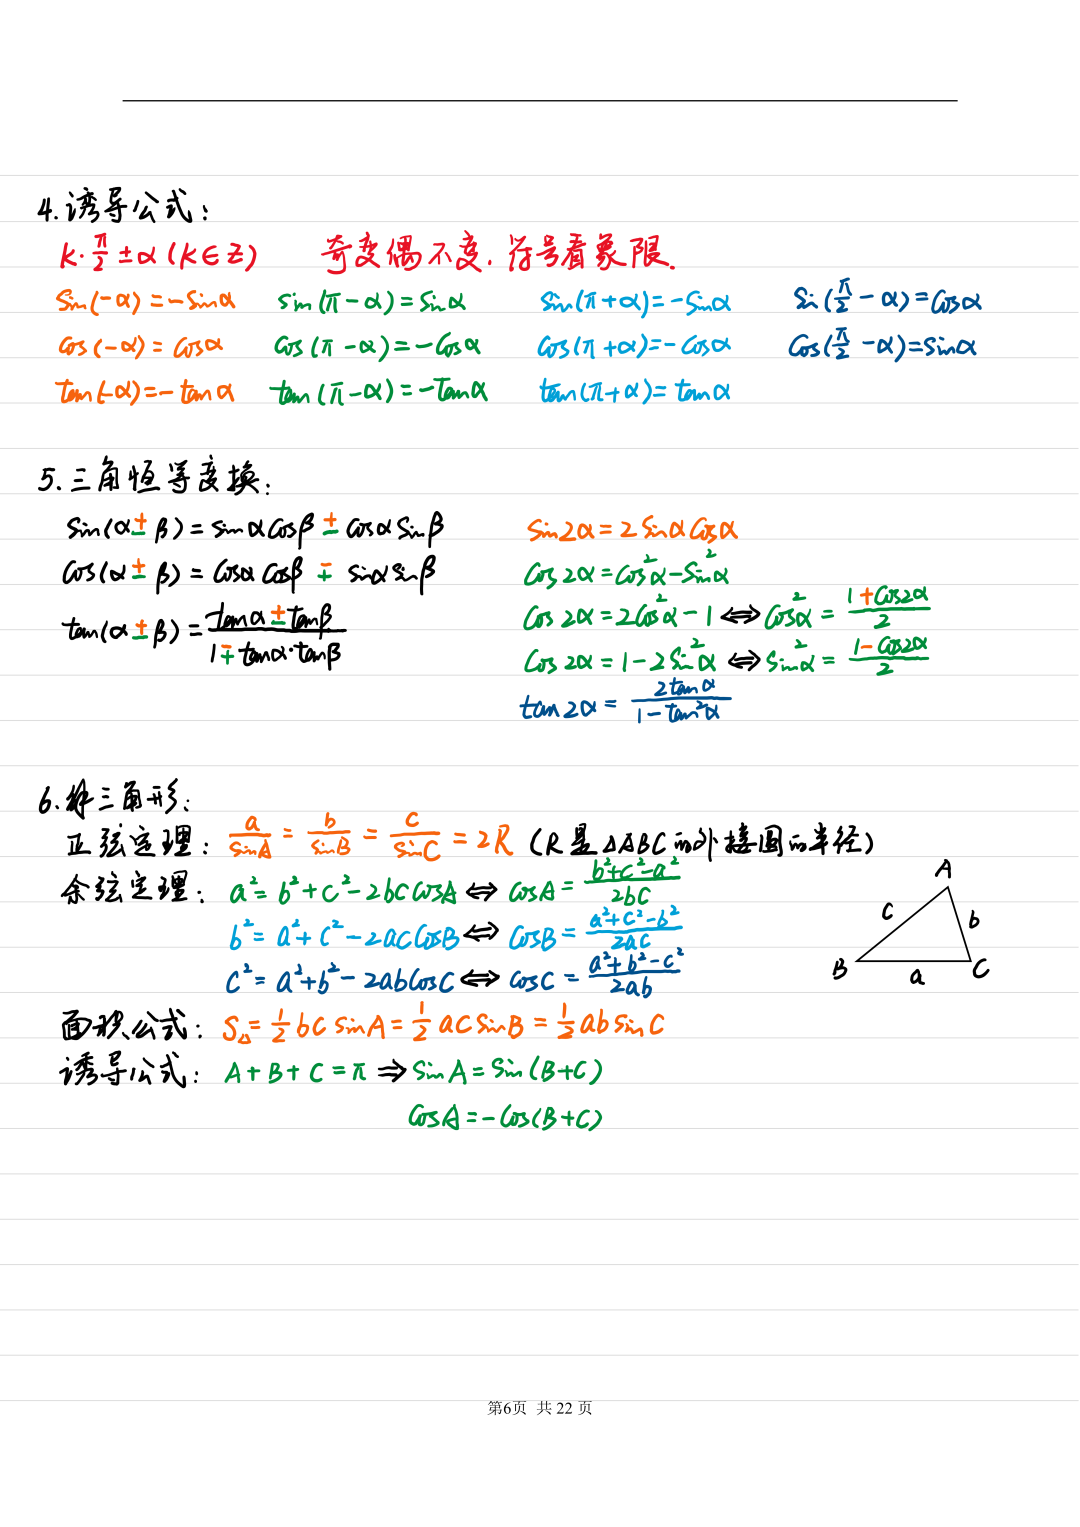 4.诱导公式:
k·π/2±α(k∈Z) 奇变偶不变.符号看象限.
sin(-α)=-sinα sin(π-α)=sinα sin(π+α)=-sinα sin(π/2-α)=cosα
cos(-α)=cosα cos(π-α)=-cosα cos(π+α)=-cosα cos(π/2-α)=sinα
tan(-α)=-tanα tan(π-α)=-tanα tan(π+α)=tanα
5.三角恒等变换:
sin(α±β)=sinαcosβ±cosαsinβ sin2α=2sinαcosα
cos(α±β)=cosαcosβ∓sinαsinβ cos2α=cos²α-sin²α
tan(α±β)=(tanα±tanβ)/(1∓tanα·tanβ) cos2α=2cos²α-1⇔cos²α=(1+cos2α)/2
cos2α=1-2sin²α⇔sin²α=(1-cos2α)/2
tan2α=2tanα/(1-tan²α)
6.解三角形:
正弦定理: a/sinA=b/sinB=c/sinC=2R (R是△ABC的外接圆的半径)
余弦定理: a²=b²+c²-2bccosA⇔cosA=(b²+c²-a²)/2bc
b²=a²+c²-2accosB⇔cosB=(a²+c²-b²)/2ac
c²=a²+b²-2abcosC⇔cosC=(a²+b²-c²)/2ab
A
c b
B a C
面积公式: S△=1/2bcsinA=1/2acsinB=1/2absinC
诱导公式: A+B+C=π⇒sinA=sin(B+C)
cosA=-cos(B+C)
第6页 共 22 页